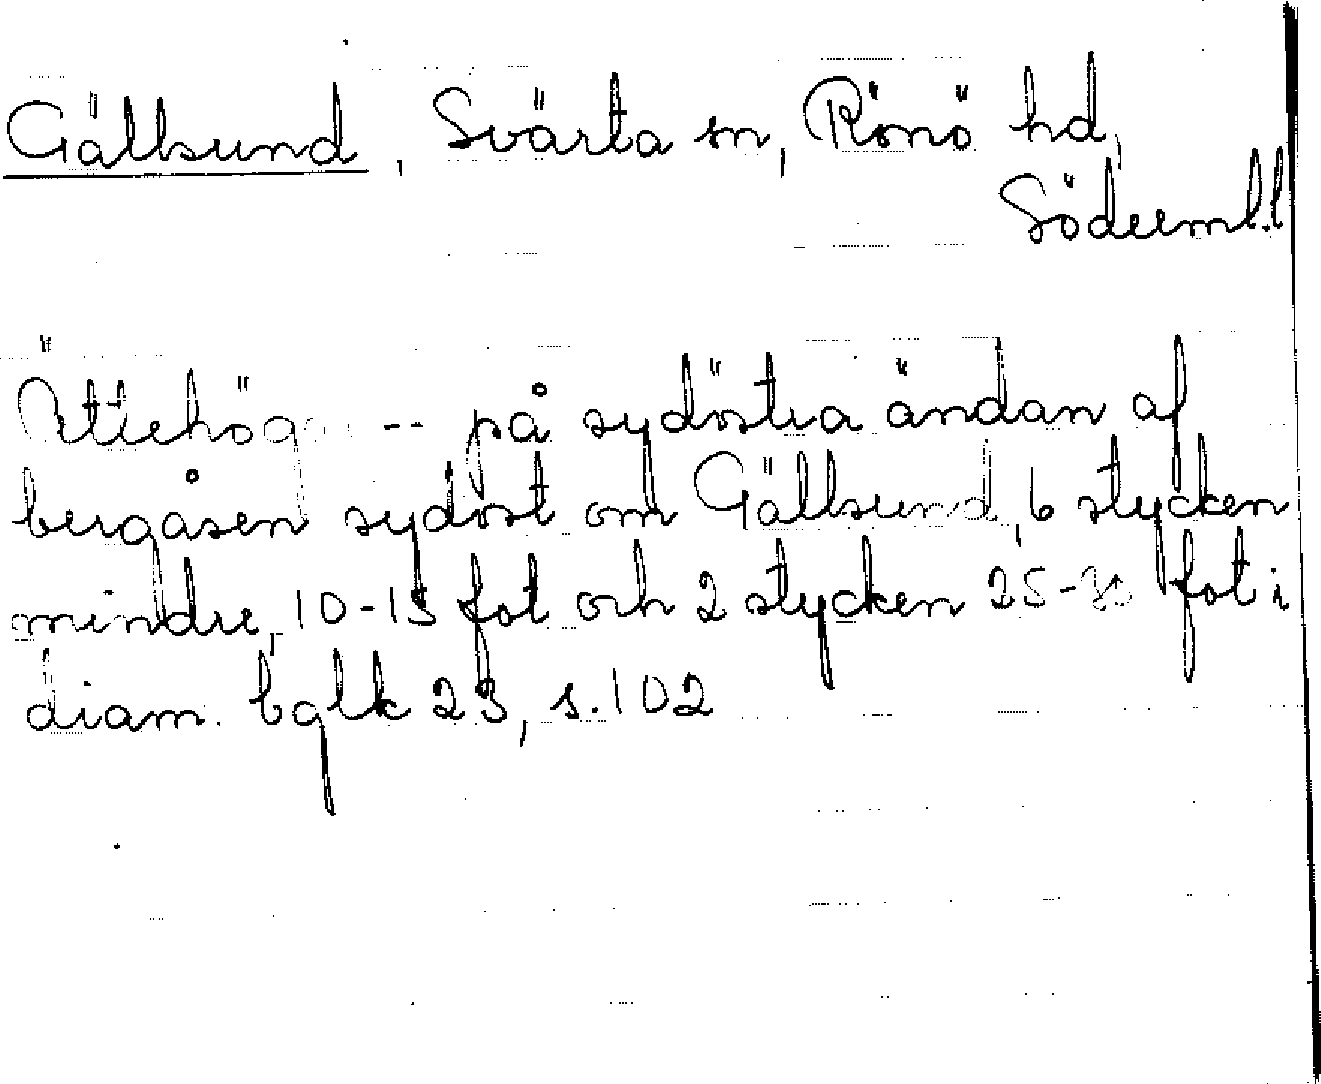 Gällsund, Svärta sn, Rönö hd,
Söderml.l
Ättehögar -- på sydöstra ändan af
bergåsen sydöst om Gällsund, 6 stycken
mindre, 10-15 fot och 2 stycken 25-30 fot i
diam. bglk 23, s. 102